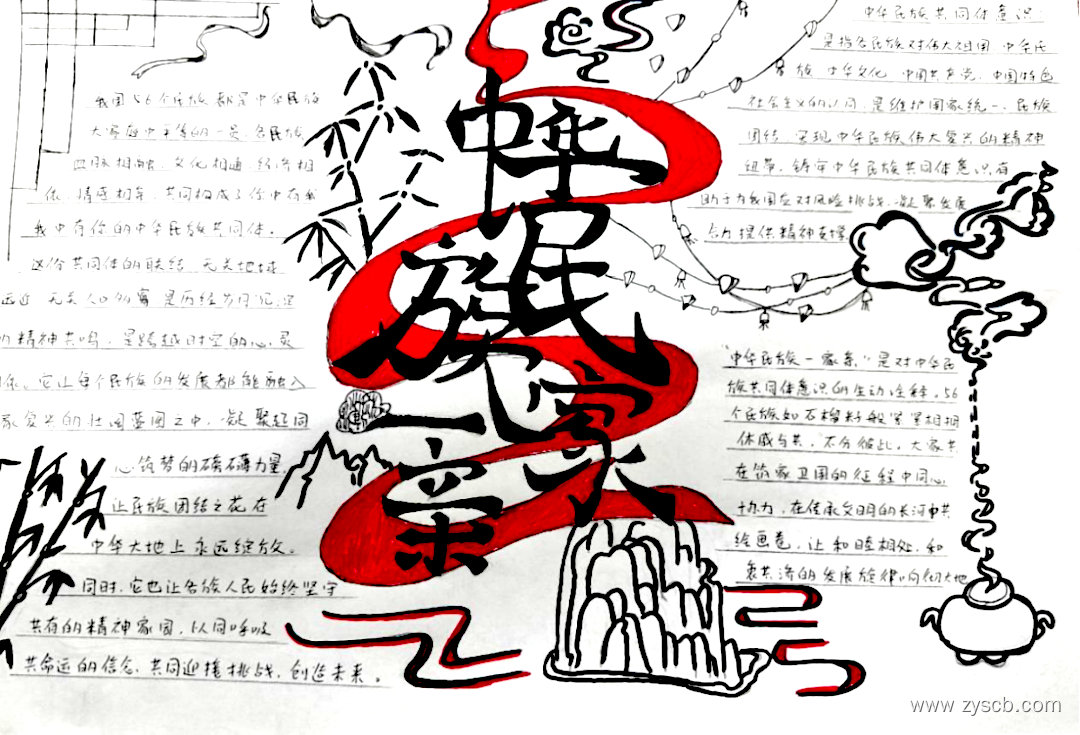 中华
民族
一家亲
我国56个民族都是中华民族
大家庭中平等的一员,各民族
血脉相融、文化相通、经济相
依、情感相亲,共同构成了你中有我
我中有你的中华民族共同体。
这份共同体的联结,无关地域
远近,无关人口多寡,是历经岁月沉淀
的精神共鸣,是跨越时空的心灵
它让每个民族的发展都能融入
家复兴的壮阔蓝图之中,凝聚起同
心筑梦的磅礴力量,
让民族团结之花在
中华大地上永远绽放。
同时,它也让各族人民始终坚守
共有的精神家园,以同呼吸
共命运的信念,共同迎接挑战,创造未来。
中华民族共同体意识:
是指各民族对伟大祖国、中华民
族、中华文化、中国共产党、中国特色
社会主义的认同,是维护国家统一、民族
团结、实现中华民族伟大复兴的精神
纽带,铸牢中华民族共同体意识,有
助于为我国应对风险挑战、凝聚发展
合力提供精神支撑
“中华民族一家亲,”是对中华民
族共同体意识的生动诠释。56
个民族如石榴籽般紧紧相拥
休戚与共,不分彼此。大家共
在筑家卫国的征程中同心
协力,在传承文明的长河中共
绘画卷,让和睦相处、和
衷共济的发展旋律响彻大地
www.zyscb.com